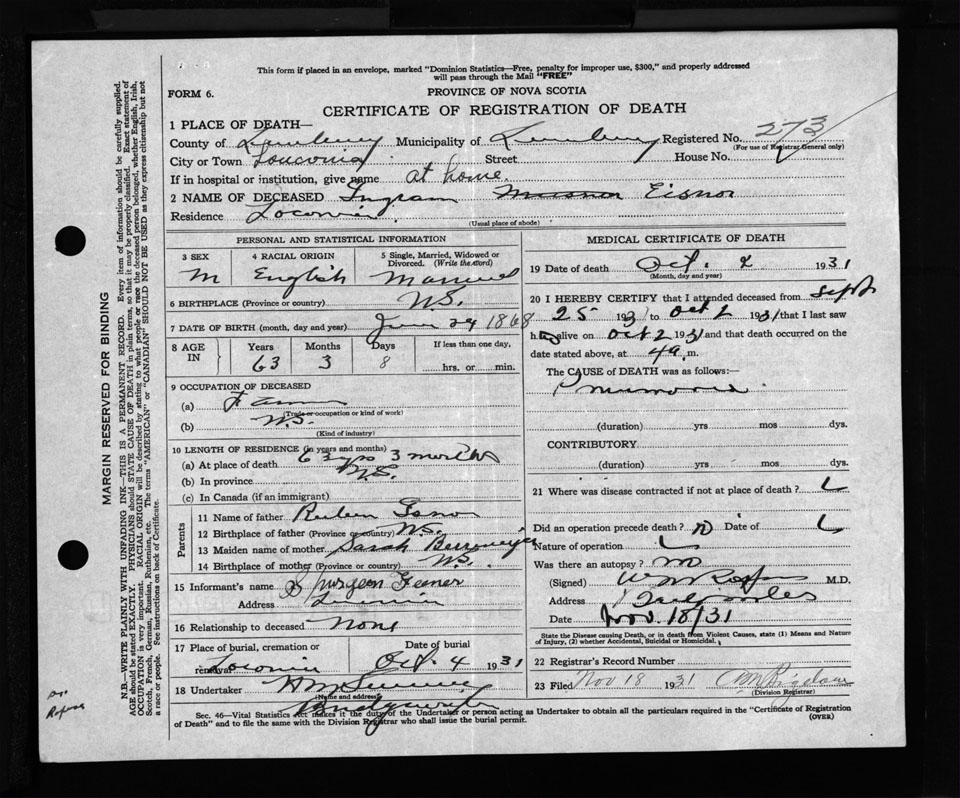 This form if placed in an envelope, marked "Dominion Statistics—Free, penalty for improper use, $300," and properly addressed
will pass through the Mail "FREE"
FORM 6.
PROVINCE OF NOVA SCOTIA
CERTIFICATE OF REGISTRATION OF DEATH
1 PLACE OF DEATH—
County of Lunenburg Municipality of Lunenburg Registered No. 273
(For use of Registrar General only)
City or Town Street House No.
If in hospital or institution, give name at home.
2 NAME OF DECEASED Ingram Eisnor
Residence
(Usual place of abode)
PERSONAL AND STATISTICAL INFORMATION
3 SEX 4 RACIAL ORIGIN 5 Single, Married, Widowed or Divorced. (Write the word)
M English Married
6 BIRTHPLACE (Province or country) N.S.
7 DATE OF BIRTH (month, day and year) June 24 1868
8 AGE IN Years Months Days If less than one day,
63 3 8 hrs. or min.
9 OCCUPATION OF DECEASED
(a) Farmer
(Trade or occupation or kind of work)
(b) N.S.
(Kind of industry)
10 LENGTH OF RESIDENCE (in years and months)
(a) At place of death 63 yrs 3 months
(b) In province N.S.
(c) In Canada (if an immigrant)
Parents
11 Name of father Reuben
12 Birthplace of father (Province or country) N.S.
13 Maiden name of mother Sarah
14 Birthplace of mother (Province or country) N.S.
15 Informant's name Spurgeon
Address
16 Relationship to deceased None
17 Place of burial, cremation or removal Date of burial
Oct. 4 1931
18 Undertaker
(Name and address)
Bridgewater
MEDICAL CERTIFICATE OF DEATH
19 Date of death Oct. 2 1931
(Month, day and year)
20 I HEREBY CERTIFY that I attended deceased from Sept
25 1931 to Oct 2 1931 that I last saw
h alive on Oct 2 1931 and that death occurred on
date stated above, at 4 a. m.
The CAUSE of DEATH was as follows:—
Pneumonia
(duration) yrs mos dys.
CONTRIBUTORY
(duration) yrs. mos. dys.
21 Where was disease contracted if not at place of death?
Did an operation precede death? no Date of
Nature of operation
Was there an autopsy? no
(Signed) M.D.
Address
Date Nov. 18/31
State the Disease causing Death, or in death from Violent Causes, state (1) Means and Nature
of Injury, (2) whether Accidental, Suicidal or Homicidal.
22 Registrar's Record Number
23 Filed Nov 18 1931
(Division Registrar)
Sec. 46—Vital Statistics Act makes it the duty of the Undertaker or person acting as Undertaker to obtain all the particulars required in the "Certificate of Registration
of Death" and to file the same with the Division Registrar who shall issue the burial permit.
(OVER)
MARGIN RESERVED FOR BINDING
N.B.—WRITE PLAINLY WITH UNFADING INK—THIS IS A PERMANENT RECORD. Every item of information should be carefully supplied.
AGE should be stated EXACTLY. PHYSICIANS should STATE CAUSE OF DEATH in plain terms, so that it may be properly classified. Exact statement of
OCCUPATION is very important. RACIAL ORIGIN will be described by stating to what people or race the deceased person belonged, whether English, Irish,
Scotch, French, German, Russian, Ruthenian, etc. The terms "AMERICAN" or "CANADIAN" SHOULD NOT BE USED as they express citizenship but not
a race or people. See instructions on back of Certificate.